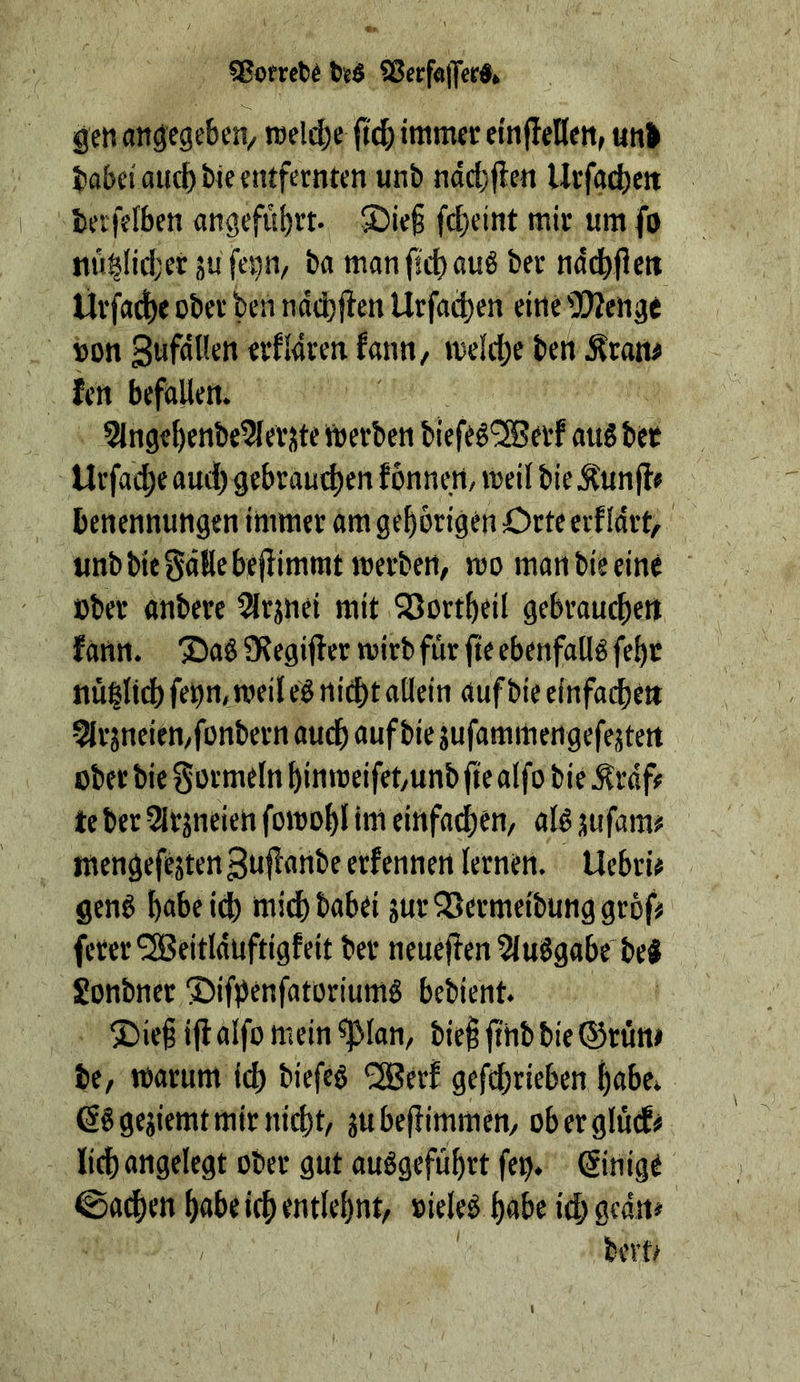 Vorrede des Verfassers.
gen angegeben, welche sich immer einstellen, und
dabei auch die entfernten und nächsten Ursachen
derselben angeführt. Dieß scheint mir um so
nützlicher zu seyn, da man sich aus der nächsten
Ursache oder den nächsten Ursachen eine Menge
von Zufällen erklären kann, welche den Kran-
ken befallen.
Angehende Aerzte werden dieses Werk aus der
Ursache auch gebrauchen können, weil die Kunst-
benennungen immer am gehörigen Orte erklärt,
und die Fälle bestimmt werden, wo man die eine
oder andere Arznei mit Vortheil gebrauchen
kann. Das Register wird für sie ebenfalls sehr
nützlich seyn, weil es nicht allein auf die einfachen
Arzneien, sondern auch auf die zusammengesezten
oder die Formeln hinweiset, und sie also die Kräf-
te der Arzneien sowohl im einfachen, als zusam-
mengesezten Zustande erkennen lernen. Uebri-
gens habe ich mich dabei zur Vermeidung grös-
serer Weitläuftigkeit der neuesten Ausgabe des
Londner Dispensatoriums bedient.
Dieß ist also mein Plan, dieß sind die Grün-
de, warum ich dieses Werk geschrieben habe.
Es geziemt mir nicht, zu bestimmen, ob er glück-
lich angelegt oder gut ausgeführt sey. Einige
Sachen habe ich entlehnt, vieles habe ich geän-
dert,